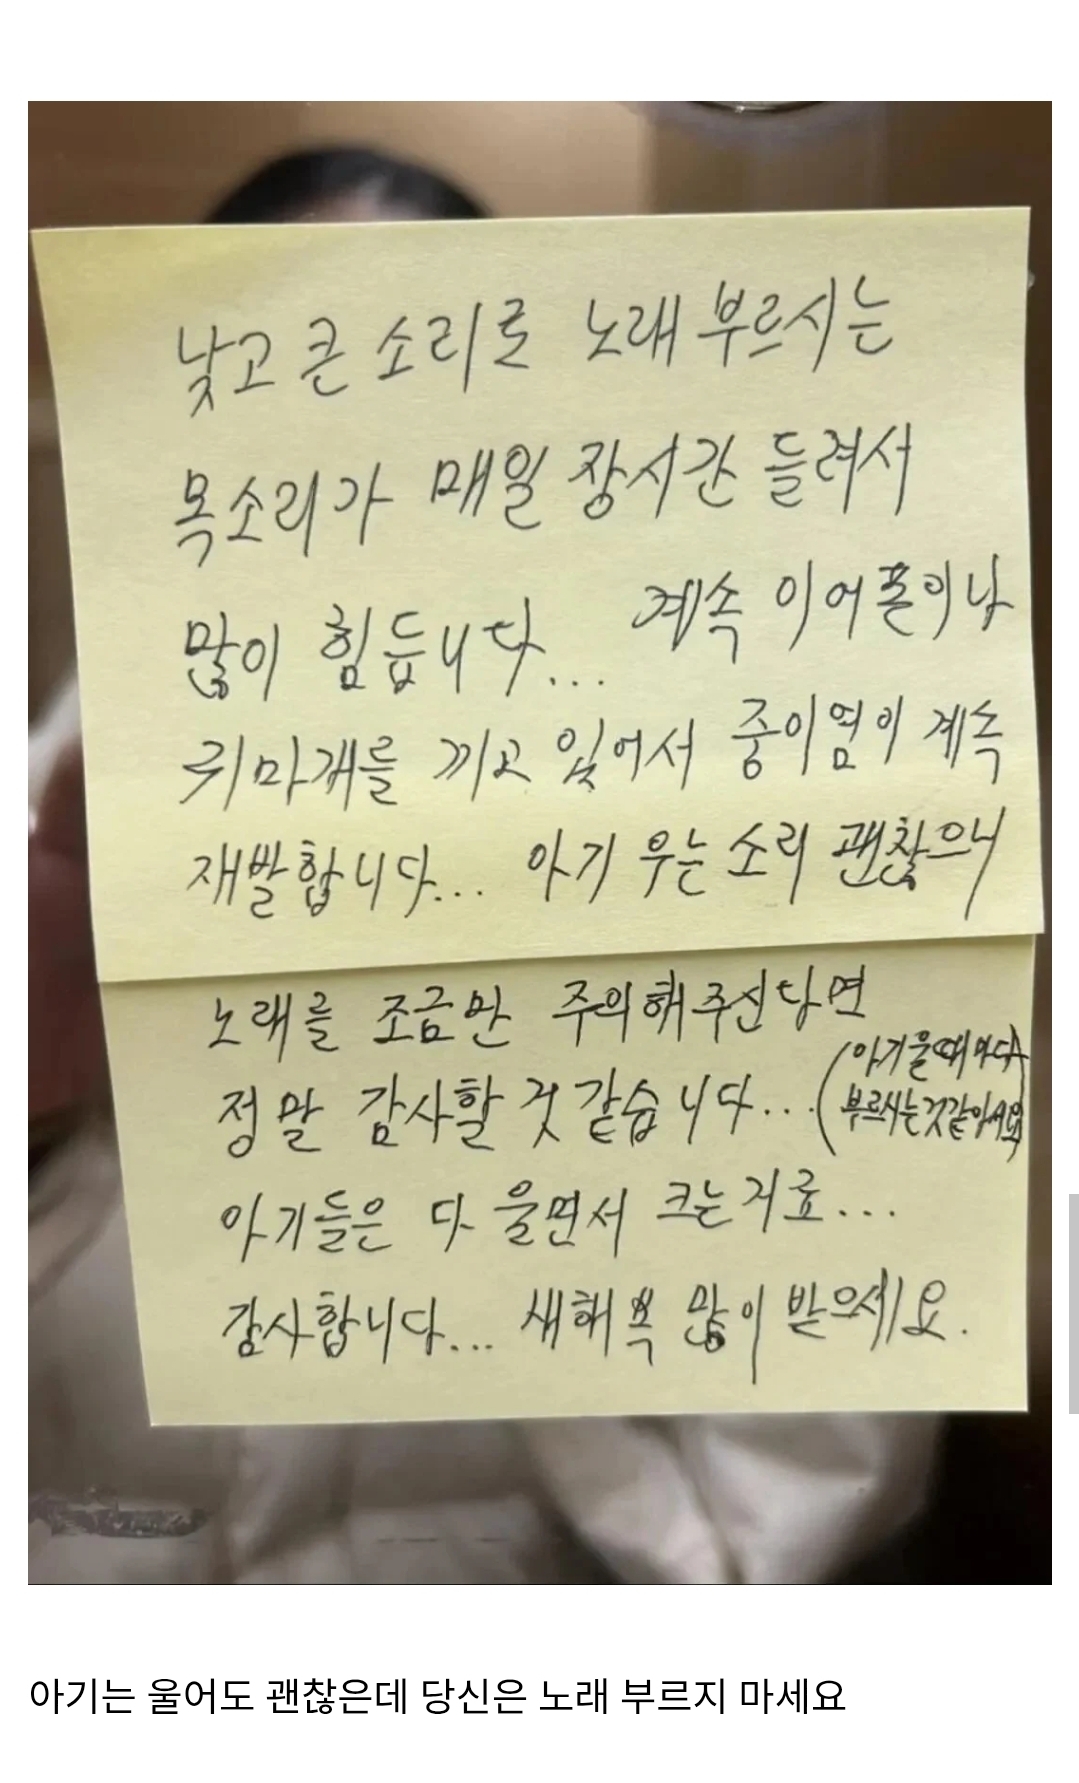 낮고 큰 소리로 노래 부르시는
목소리가 매일 장시간 들려서
많이 힘듭니다... 계속 이어폰이나
귀마개를 끼고 있어서 중이염이 계속
재발합니다... 아기 우는 소리 괜찮으니
노래를 조금만 주의해주신다면
정말 감사할 것 같습니다... (아기울때마다
부르시는것같아서요)
아기들은 다 울면서 크는거죠...
감사합니다... 새해 복 많이 받으세요.
아기는 울어도 괜찮은데 당신은 노래 부르지 마세요